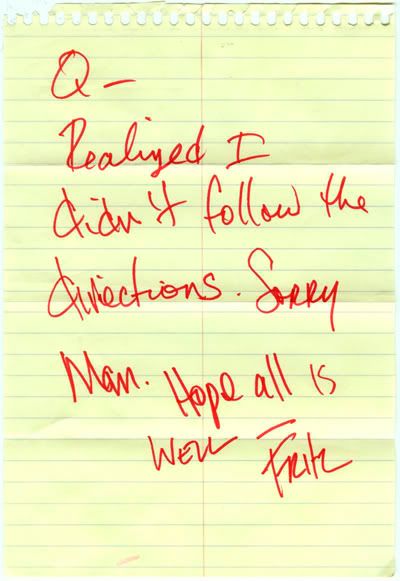 Q –
Realized I
didn't follow the
directions. Sorry
Man. Hope all is
Well –
Fritz